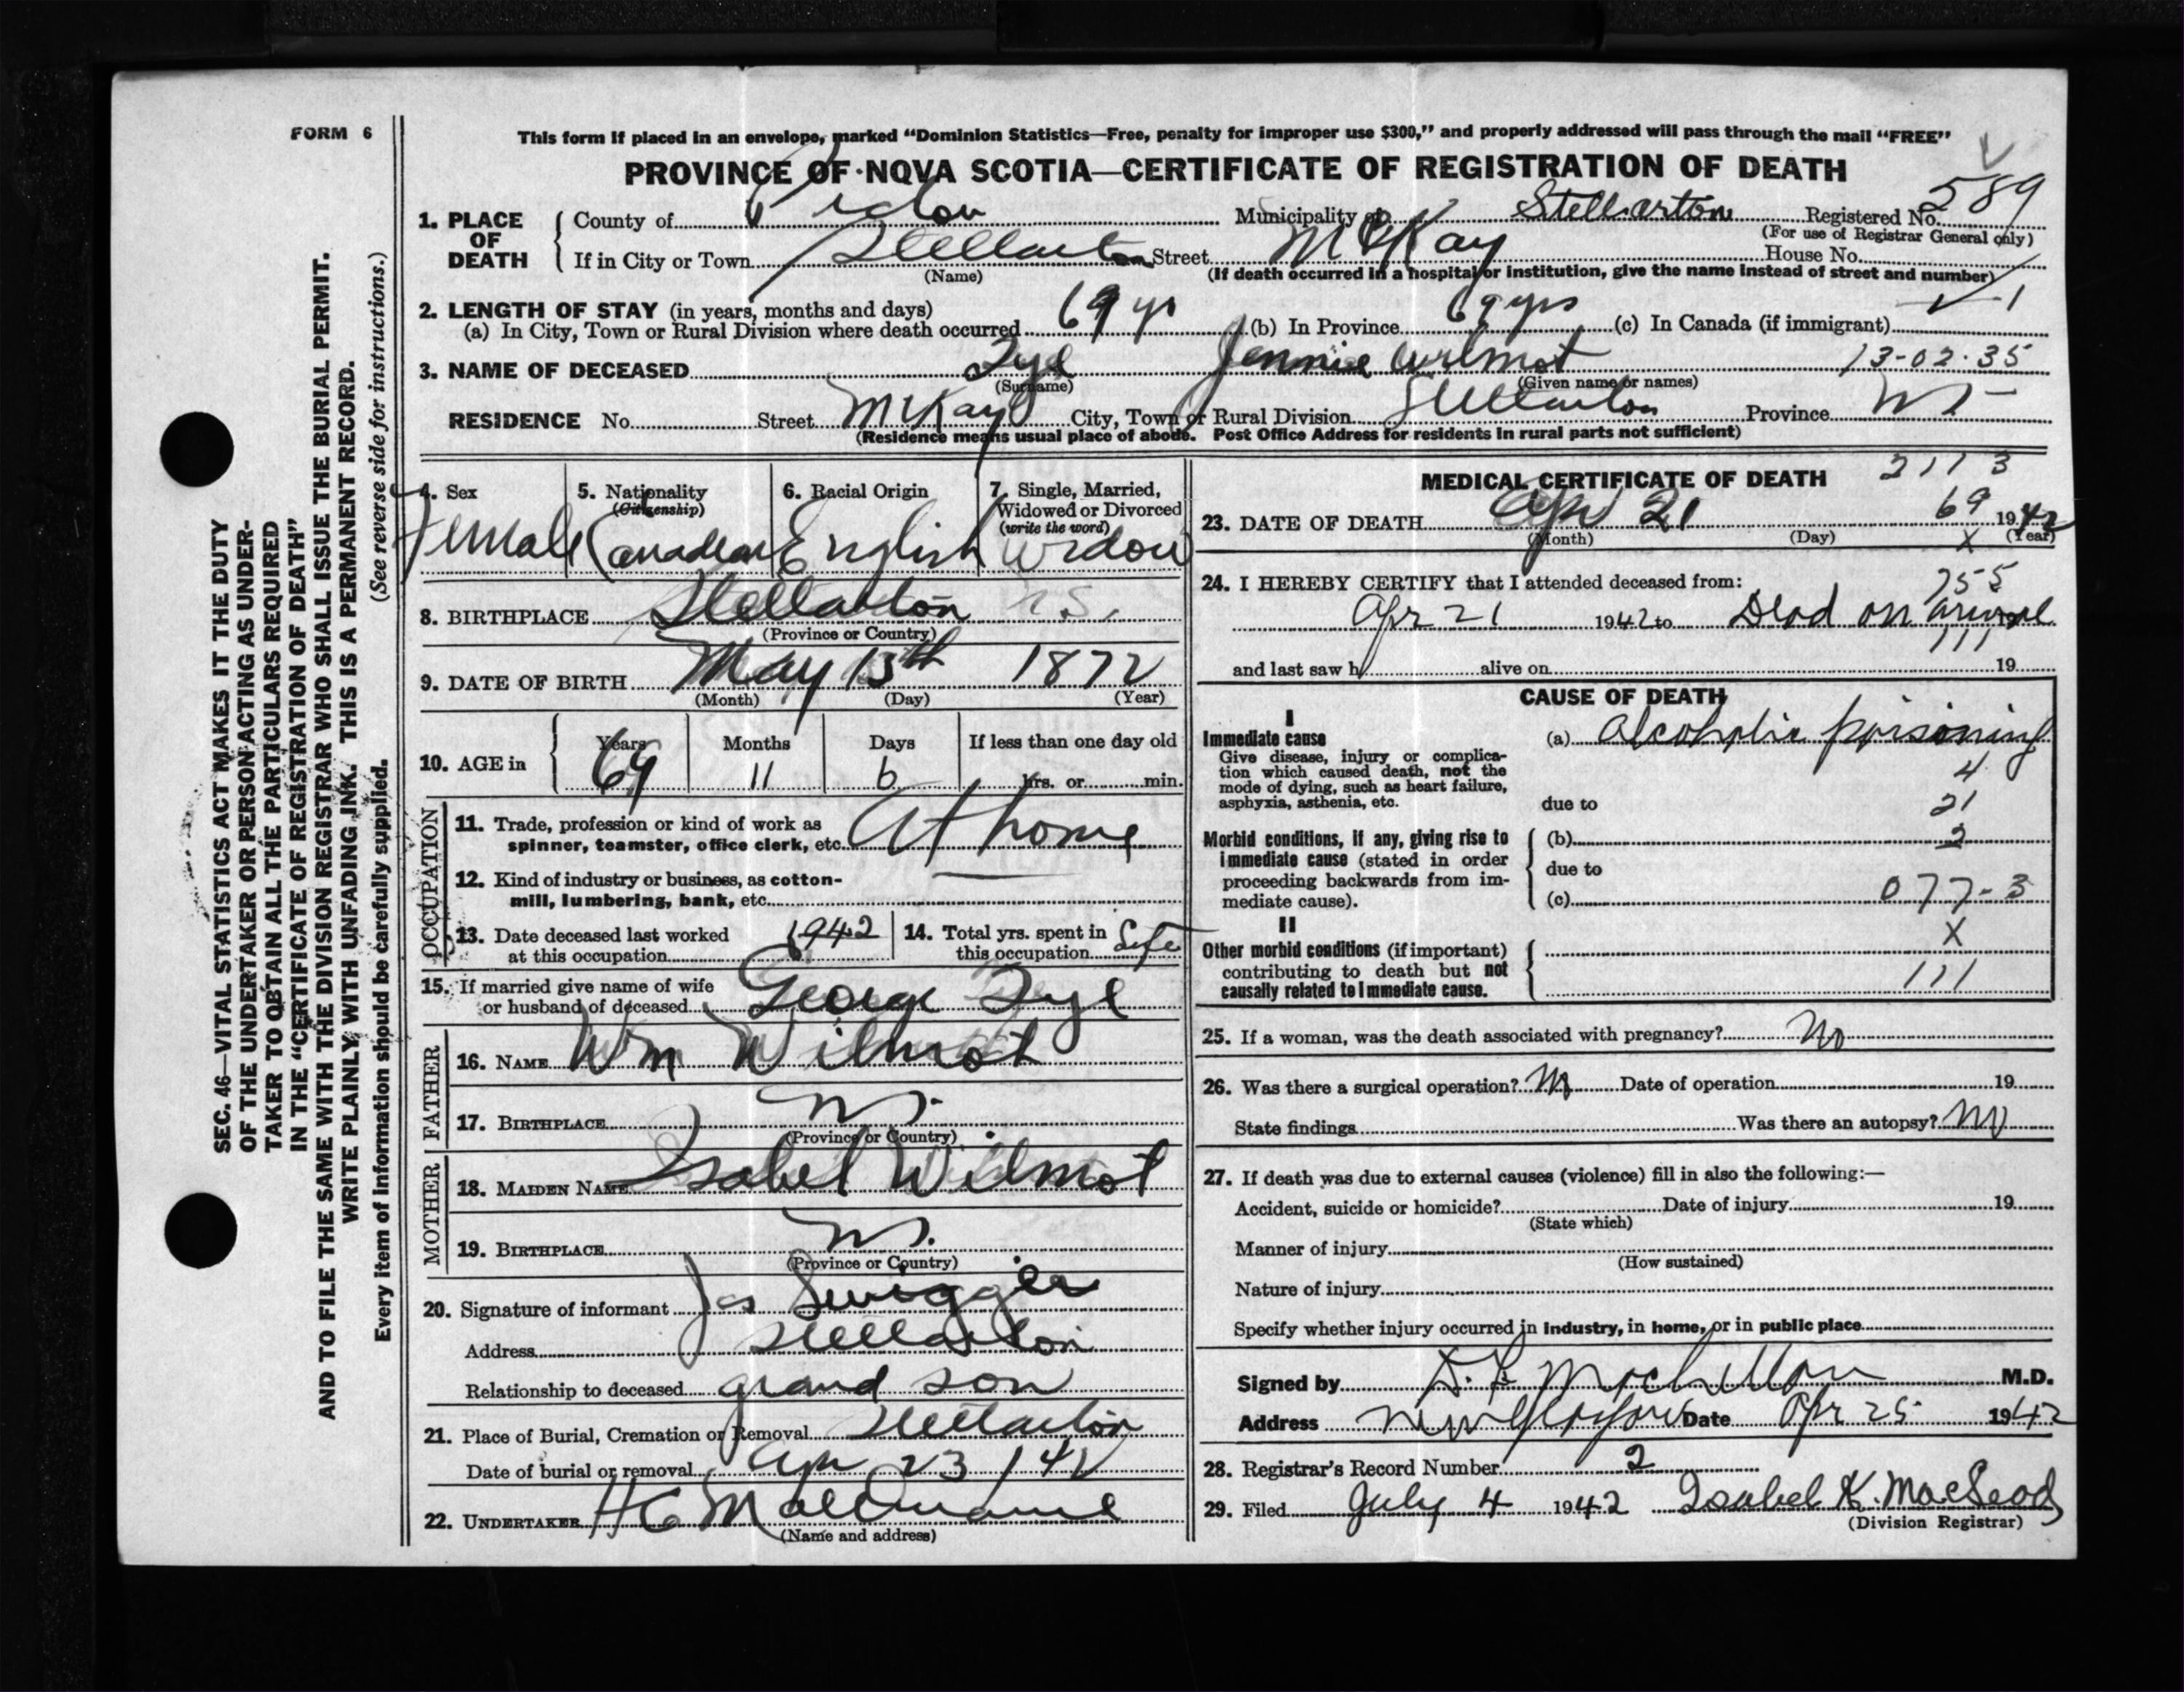 FORM 6
This form if placed in an envelope, marked "Dominion Statistics—Free, penalty for improper use $300," and properly addressed will pass through the mail "FREE"
PROVINCE OF NOVA SCOTIA—CERTIFICATE OF REGISTRATION OF DEATH
589
1. PLACE OF DEATH
County of Pictou Municipality of Stellarton Registered No.
(For use of Registrar General only)
If in City or Town Stellarton Street McKay House No.
(Name) (If death occurred in a hospital or institution, give the name instead of street and number)
2. LENGTH OF STAY (in years, months and days)
(a) In City, Town or Rural Division where death occurred 69 yrs (b) In Province 69 yrs (c) In Canada (if immigrant)
3. NAME OF DECEASED Tye Jennie Wilmot 13-02-35
(Surname) (Given name or names)
RESIDENCE No. Street McKay City, Town or Rural Division Stellarton Province NS
(Residence means usual place of abode. Post Office Address for residents in rural parts not sufficient)
4. Sex
Female
5. Nationality
(Citizenship)
Canadian
6. Racial Origin
English
7. Single, Married, Widowed or Divorced
(write the word)
Widow
8. BIRTHPLACE Stellarton N.S.
(Province or Country)
9. DATE OF BIRTH May 15th 1872
(Month) (Day) (Year)
10. AGE in
Years Months Days If less than one day old
69 11 6 hrs. or min.
OCCUPATION
11. Trade, profession or kind of work as
spinner, teamster, office clerk, etc. At home
12. Kind of industry or business, as cotton-
mill, lumbering, bank, etc.
13. Date deceased last worked
at this occupation 1942
14. Total yrs. spent in
this occupation Life
15. If married give name of wife
or husband of deceased George Tye
FATHER
16. NAME Wm Wilmot
17. BIRTHPLACE NS.
(Province or Country)
MOTHER
18. MAIDEN NAME Isabel Wilmot
19. BIRTHPLACE NS.
(Province or Country)
20. Signature of informant Jas Swigger
Address Stellarton
Relationship to deceased grand son
21. Place of Burial, Cremation or Removal Stellarton
Date of burial or removal Apr 23 / 42
22. UNDERTAKER H C
(Name and address)
MEDICAL CERTIFICATE OF DEATH 2113
23. DATE OF DEATH Apr 21 69 1942
(Month) (Day) (Year)
X
24. I HEREBY CERTIFY that I attended deceased from:
755
Apr 21 1942 to Dead on arrival
111
and last saw h alive on 19
CAUSE OF DEATH
I
Immediate cause
Give disease, injury or complica-
tion which caused death, not the
mode of dying, such as heart failure,
asphyxia, asthenia, etc.
(a) Alcoholic poisoning
4
due to 21
Morbid conditions, if any, giving rise to
immediate cause (stated in order
proceeding backwards from im-
mediate cause).
(b) 2
due to
(c) 077-3
II
Other morbid conditions (if important)
contributing to death but not
causally related to immediate cause.
X
111
25. If a woman, was the death associated with pregnancy? No
26. Was there a surgical operation? No Date of operation 19
State findings Was there an autopsy? No
27. If death was due to external causes (violence) fill in also the following:—
Accident, suicide or homicide? Date of injury 19
(State which)
Manner of injury
(How sustained)
Nature of injury
Specify whether injury occurred in industry, in home, or in public place
Signed by M.D.
Address New Glasgow Date Apr 25 1942
28. Registrar's Record Number 2
29. Filed July 4 1942 Isabel K. MacLeod
(Division Registrar)
SEC. 46—VITAL STATISTICS ACT MAKES IT THE DUTY
OF THE UNDERTAKER OR PERSON ACTING AS UNDER-
TAKER TO OBTAIN ALL THE PARTICULARS REQUIRED
IN THE "CERTIFICATE OF REGISTRATION OF DEATH"
AND TO FILE THE SAME WITH THE DIVISION REGISTRAR WHO SHALL ISSUE THE BURIAL PERMIT.
WRITE PLAINLY WITH UNFADING INK. THIS IS A PERMANENT RECORD.
Every item of information should be carefully supplied. (See reverse side for instructions.)